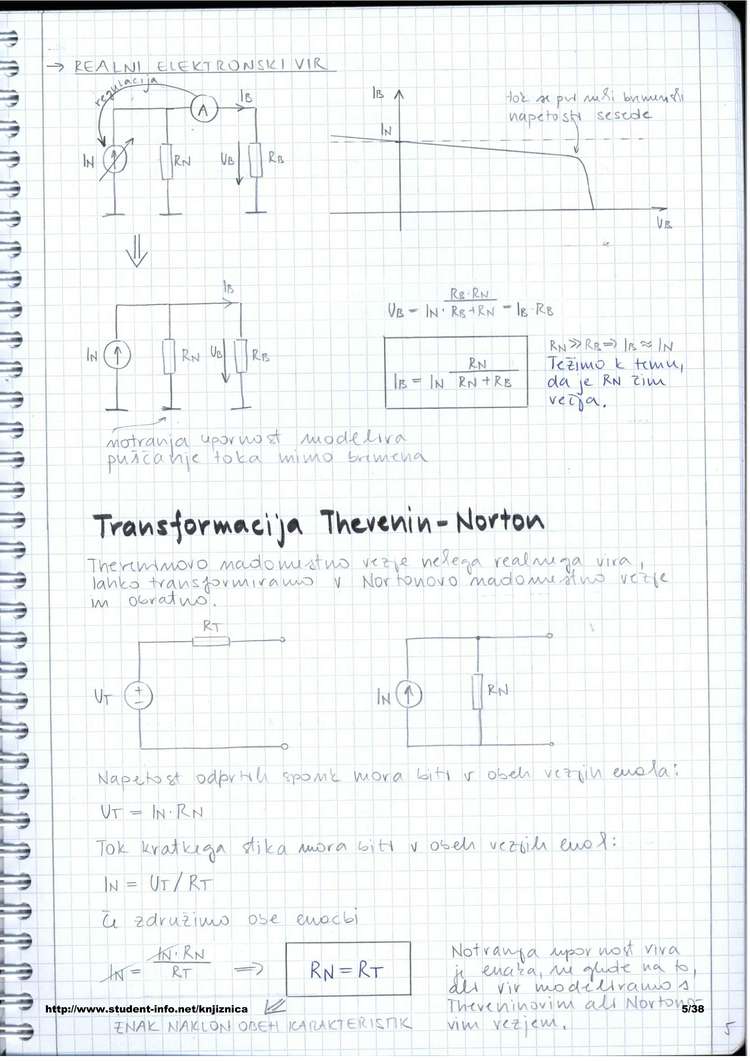 → REALNI ELEKTRONSKI VIR
regulacija
A
IB
IN
RN
UB
RB
IB
IN
tok se pri višji bremenski
napetosti sesede
UB
IB
IN
RN
UB
RB
UB = IN · RB·RN / RB+RN = IB·RB
IB = IN RN / RN+RB
RN >> RB ⇒ IB ≈ IN
Težimo k temu,
da je RN čim
večja.
notranja upornost modelira
puščanje toka mimo bremena
Transformacija Thevenin-Norton
Theveninovo nadomestno vezje nekega realnega vira,
lahko transformiramo v Nortonovo nadomestno vezje
in obratno.
RT
UT
+
−
IN
RN
Napetost odprtih sponk mora biti v obeh vezjih enaka:
UT = IN·RN
Tok kratkega stika mora biti v obeh vezjih enak:
IN = UT / RT
Če združimo obe enačbi
IN = IN·RN / RT ⇒ RN = RT
Notranja upornost vira
je enaka, ne glede na to,
ali vir modeliramo s
Theveninovim ali Norton-
vim vezjem.
http://www.student-info.net/knjiznica
5/38
ENAK NAKLON OBEH KARAKTERISTIK
5